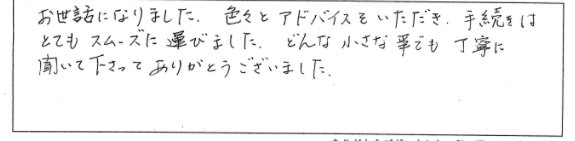 お世話になりました. 色々とアドバイスをいただき. 手続きは
とてもスムーズに運びました. どんな小さな事でも丁寧に
聞いて下さってありがとうございました.